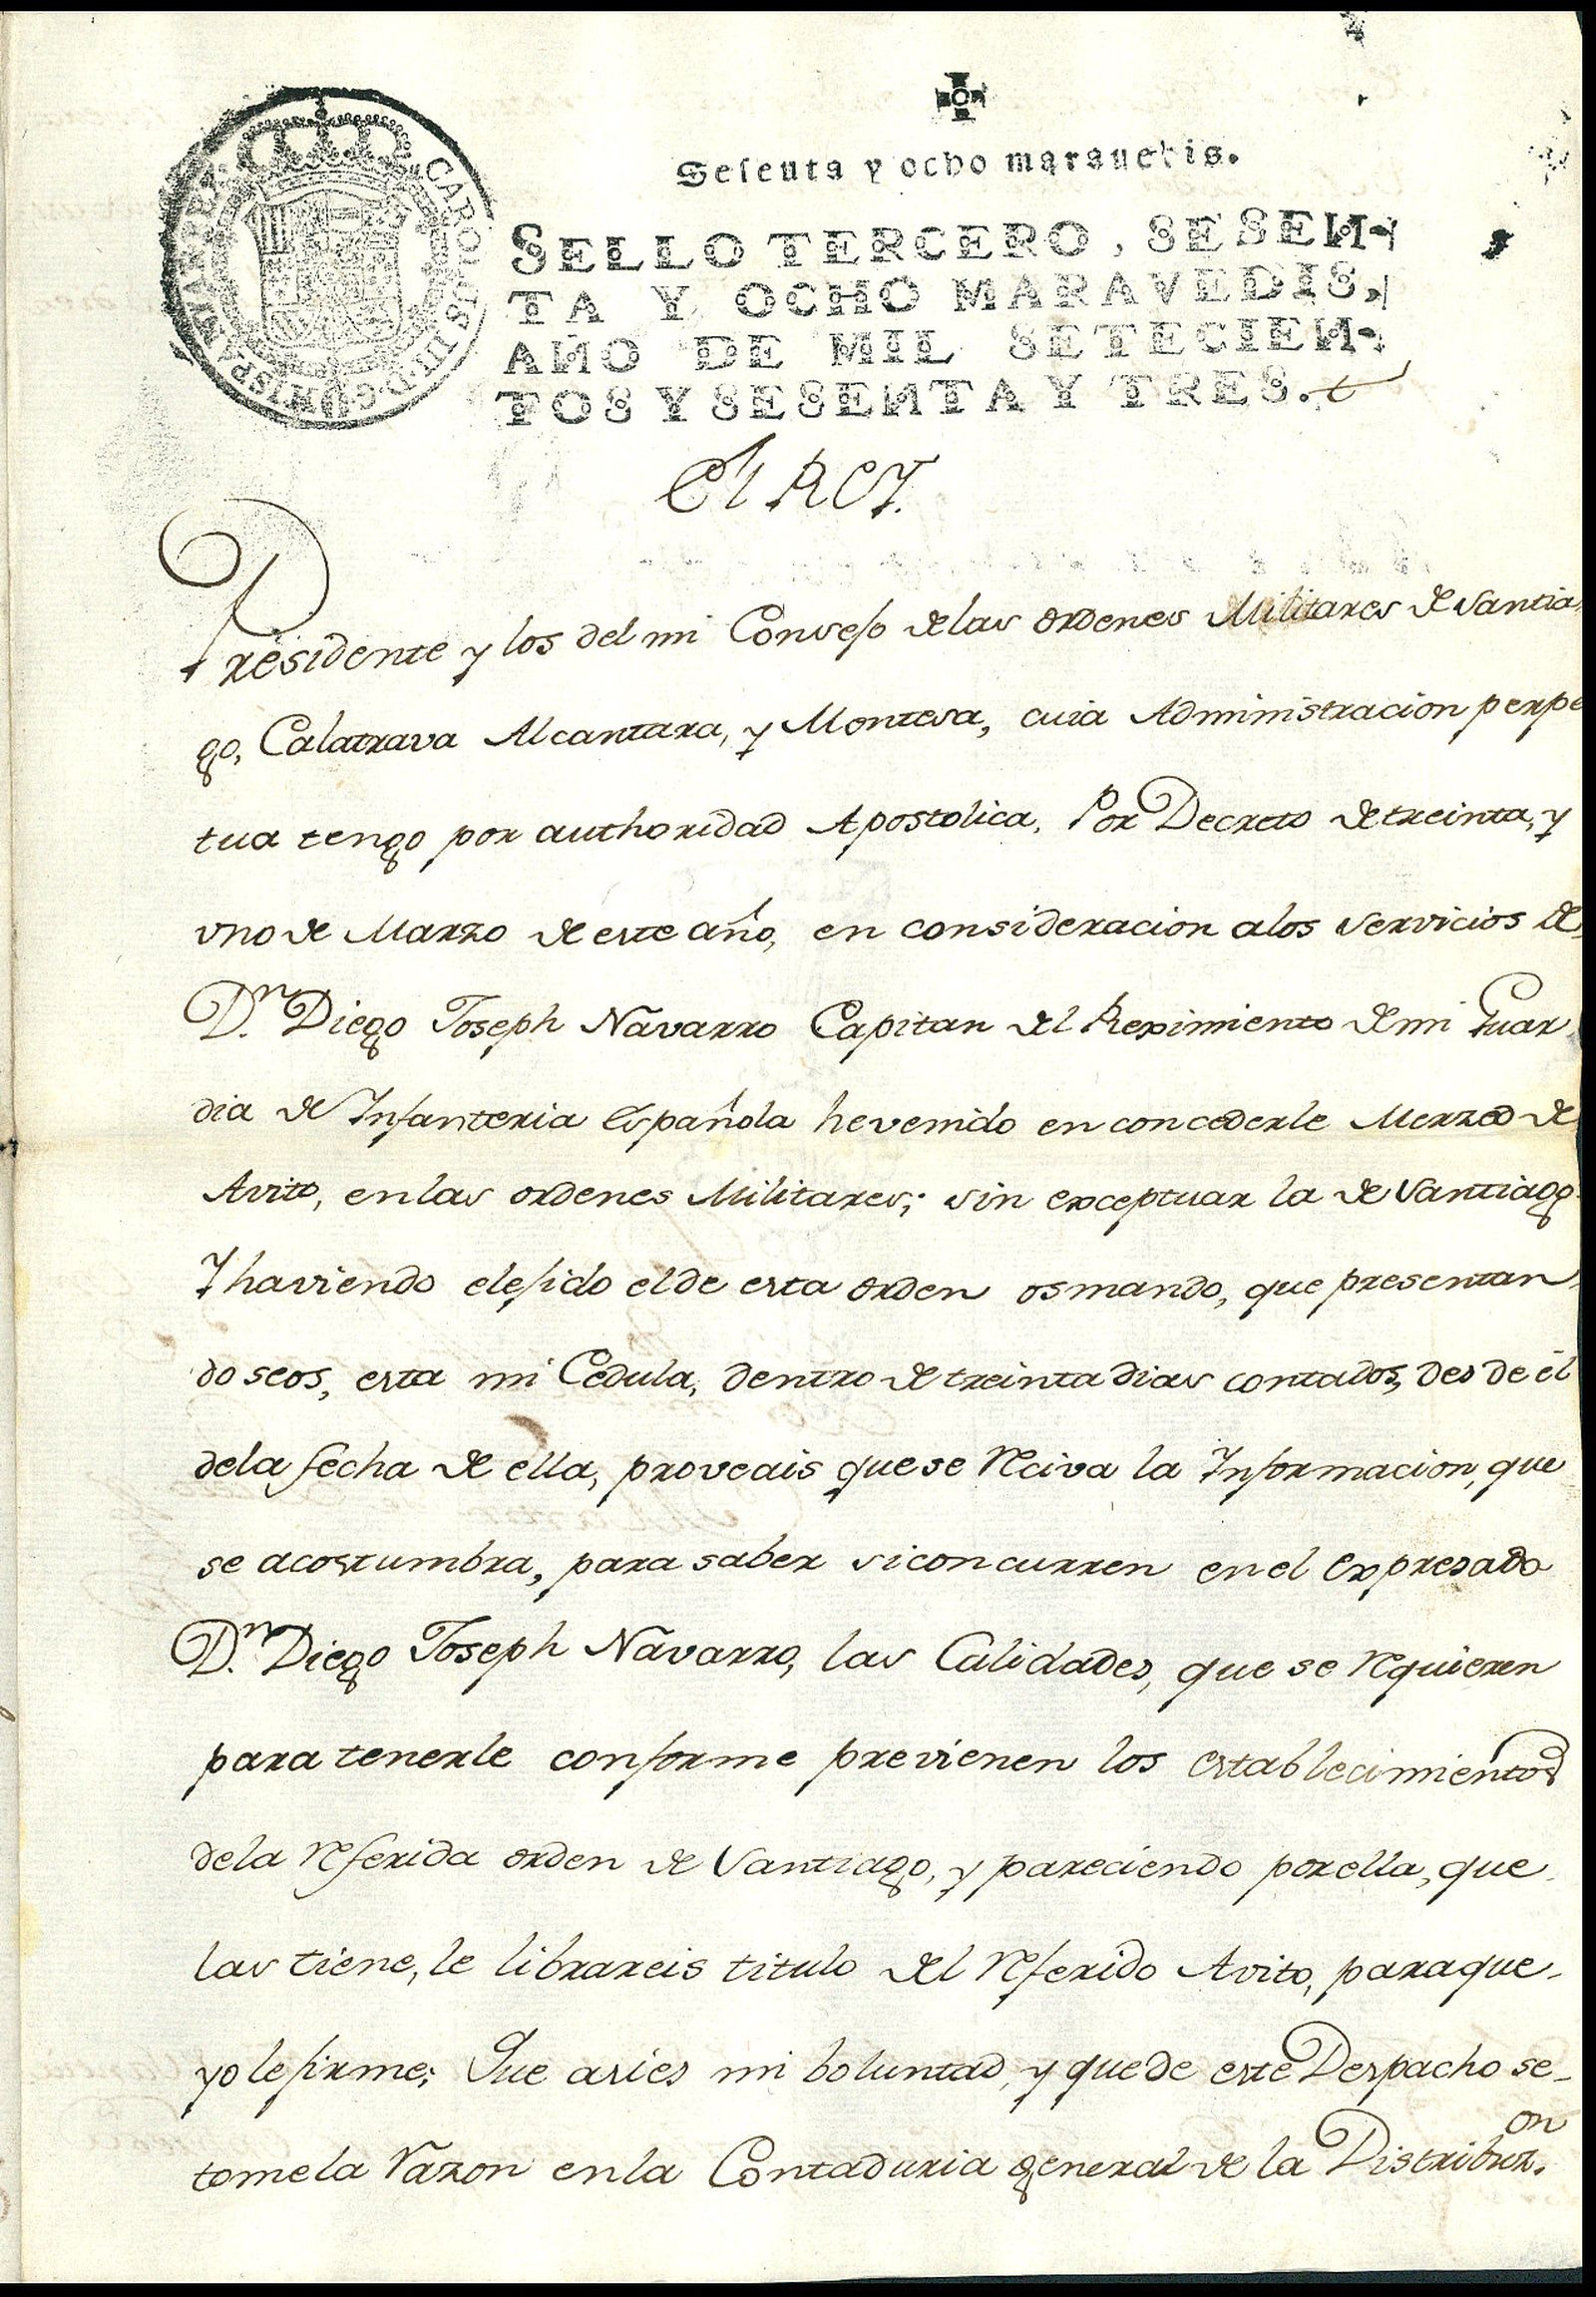 Sesenta y ocho marauedis.
SELLO TERCERO, SESEN-
TA Y OCHO MARAVEDIS,
AÑO DE MIL SETECIEN-
TOS Y SESENTA Y TRES.
CAROLUS III D G HISPANIAR REX
El Rey.
Presidente y los del mi Consejo delas ordenes Militares de Santia
go, Calatrava Alcantara, y Montesa, cuia Administracion perpe
tua tengo por authoridad Apostolica. Por Decreto de treinta, y
vno de Marzo de este año, en consideracion alos servicios de
Dn. Diego Joseph Navarro Capitan del Reximiento de mi Guar
dia de Infanteria Española he venido en concederle Merzed de
Avito, en las ordenes Militares; sin exceptuar la de Santiago
Y haviendo elejido el de esta orden os mando, que presentan
do seos, esta mi Cedula, dentro de treinta dias contados, des de él
dela fecha de ella, proveais que se Reciva la Informacion, que
se acostumbra, para saber si concurren en el expresado
Dn. Diego Joseph Navarro, las Calidades, que se Requieren
para tenerle conforme previenen los establecimientos
dela Referida orden de Santiago, y pareciendo por ella, que
las tiene, le librareis titulo del Referido Avito, para que
yo le firme; Que asi es mi boluntad, y que de este Despacho se
tome la Razon en la Contaduria general de la Distribuzon.